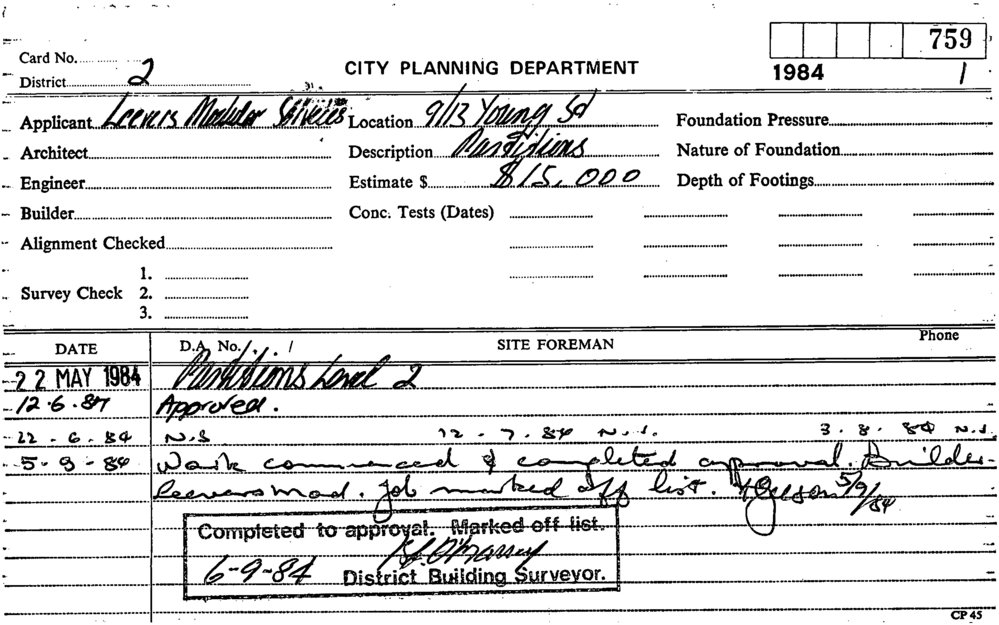 759
Card No.
CITY PLANNING DEPARTMENT
1984 1
District 2
Applicant Leevers Modular Services Location 9/13 Young St Foundation Pressure
Architect Description Partitions Nature of Foundation
Engineer Estimate $ $15,000 Depth of Footings
Builder Conc. Tests (Dates)
Alignment Checked
1.
Survey Check 2.
3.
DATE D.A. No. / / SITE FOREMAN Phone
22 MAY 1984 Partitions Level 2
12.6.84 Approved.
22 - 6 - 84 N.S 12 - 7 - 84 N.S. 3 - 8 - 84 N.S.
5 - 9 - 84 Work commenced & completed approval. Builder-
Leevers Mod. Job marked off list. 5/9/84
Completed to approval. Marked off list.
6-9-84 District Building Surveyor.
CP 45